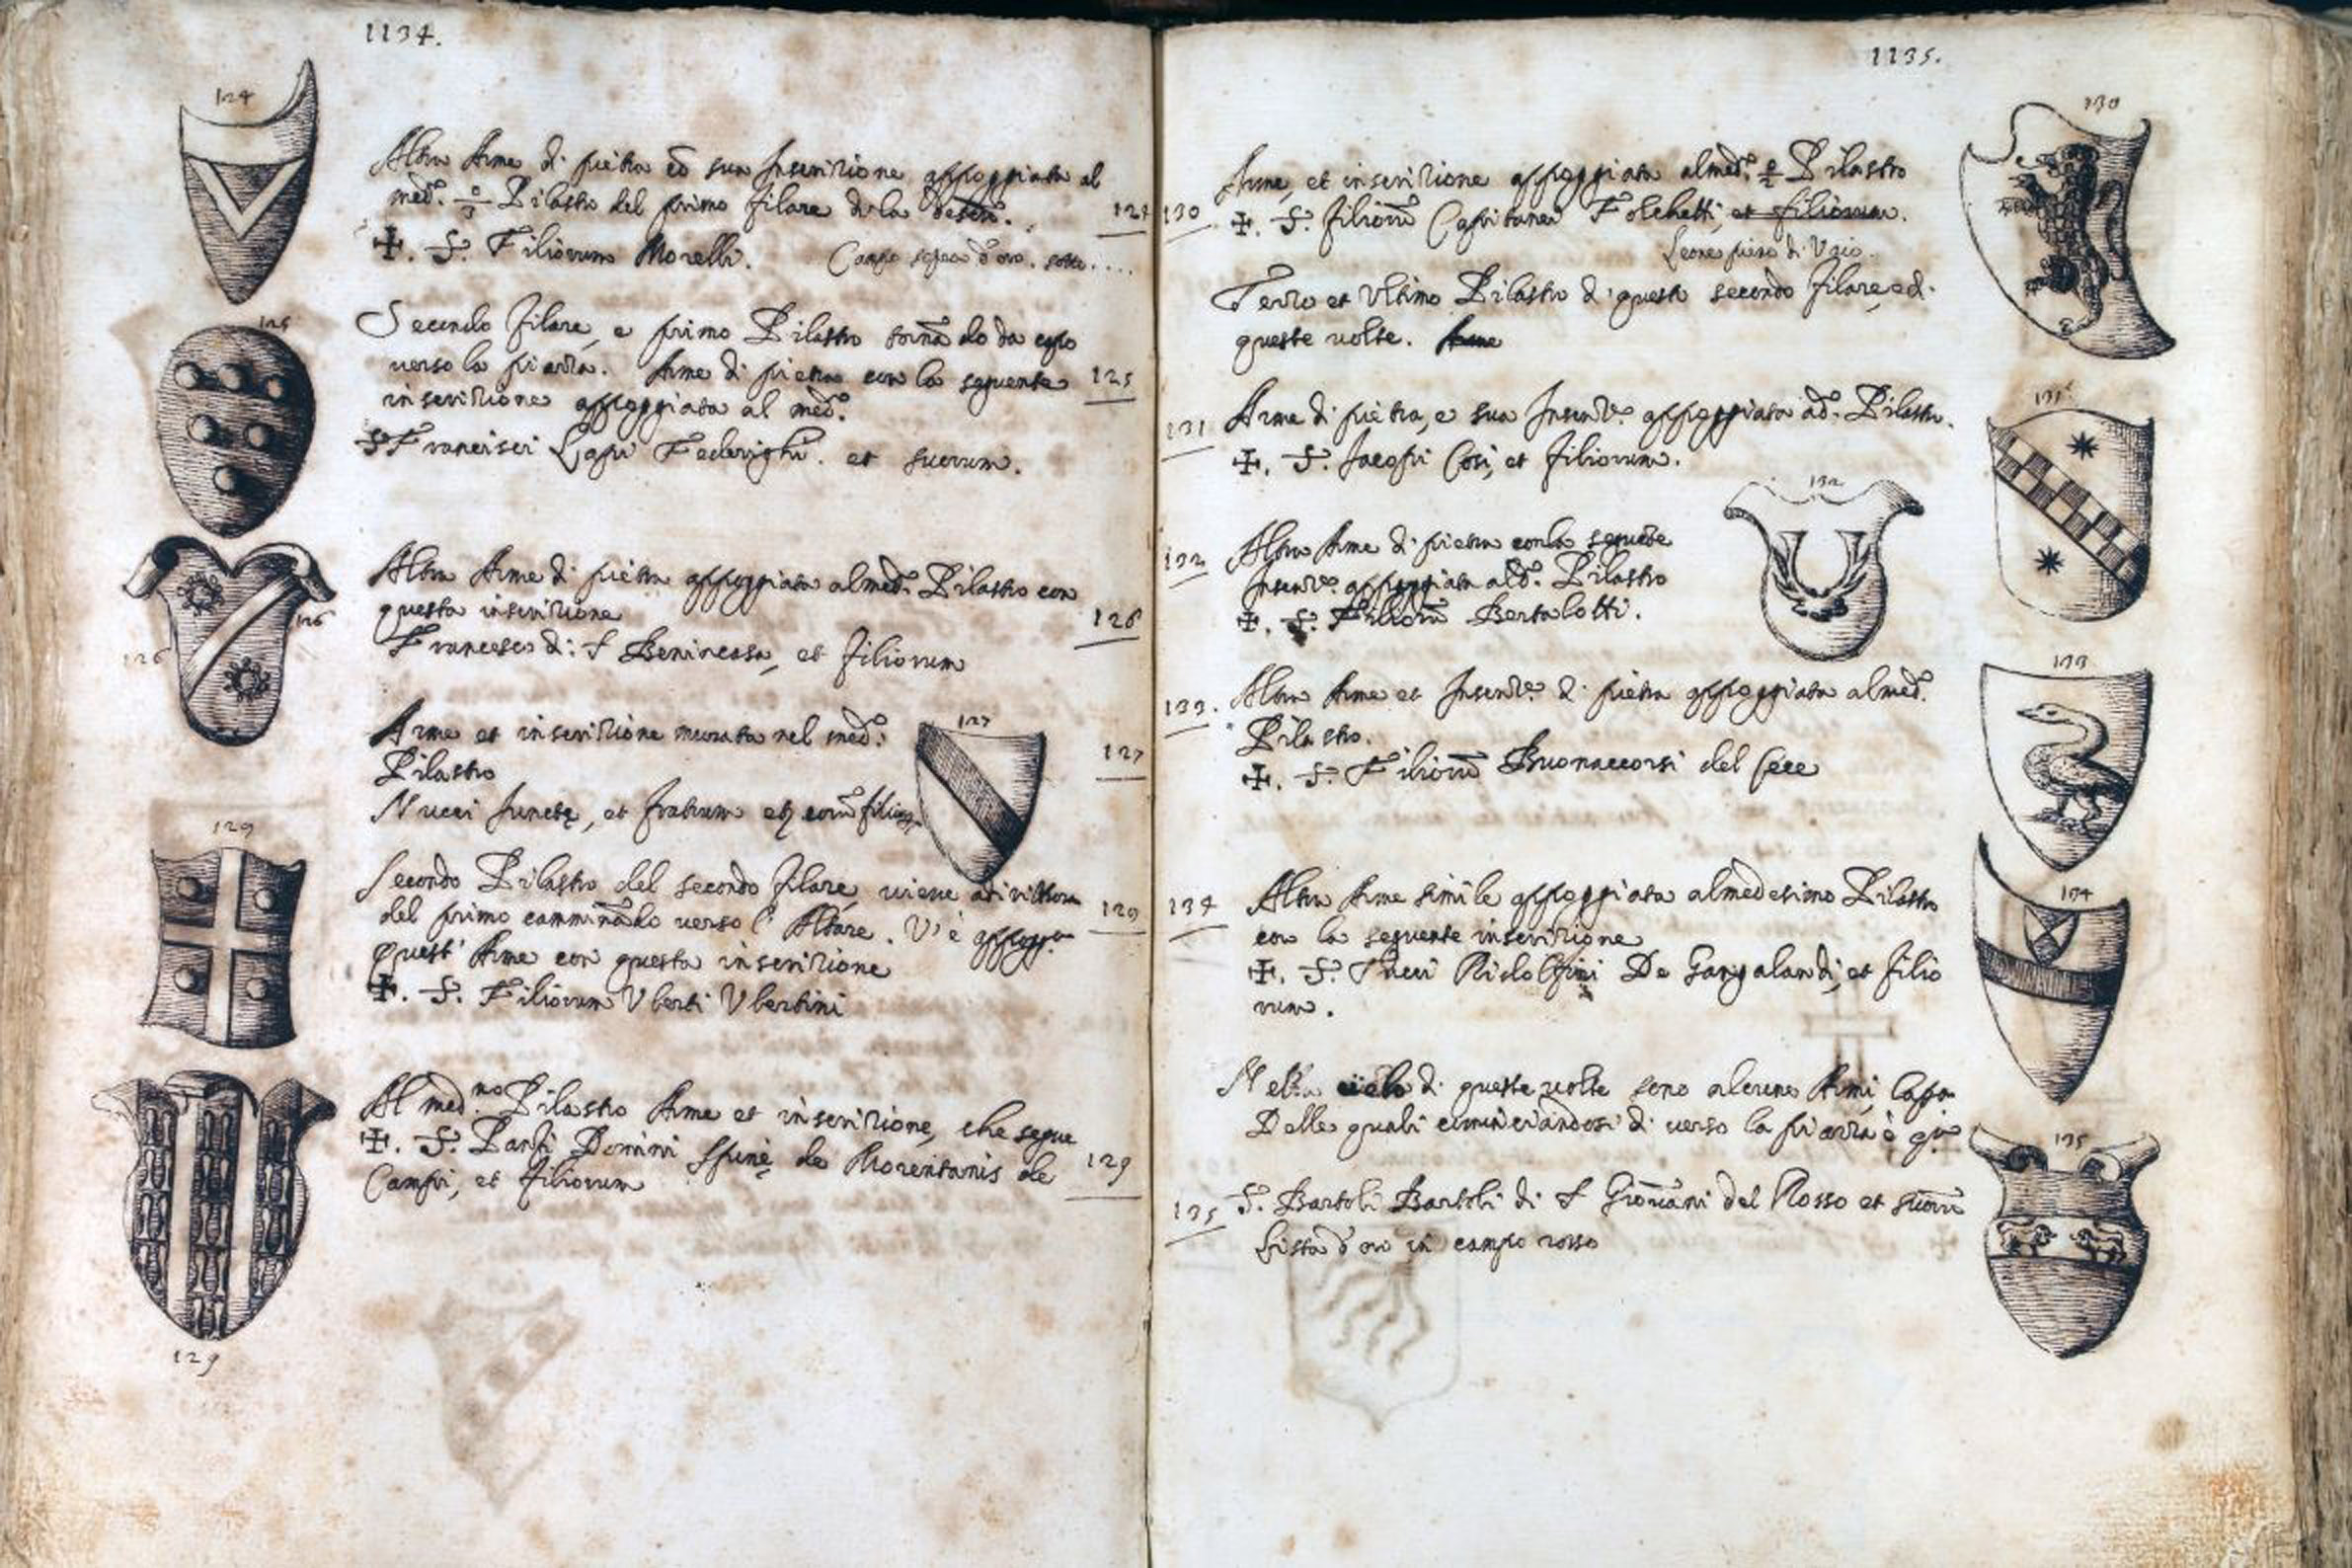 1134.
124
Altra Arme di pietra cõ sua Inscrizione appoggiata al
med.º Pilastro del primo filare dela destra.
124
✠. S. Filiorum Morelli. Campo sopra d'oro. sotto....
125
Secondo filare, e primo Pilastro tornãdo da capo
verso la piazza. Arme di pietra con la seguente
125
inscrizione appoggiata al med.º
S Francisci Lapi Federighi. et suorum.
126
Altra Arme di pietra appoggiata al med.º Pilastro con
questa inscrizione
126
Francesco di: S Benincasa, et filiorum
Arme et inscrizione murata nel med.º
127
Pilastro
127
Nucci Juncte, et fratrum et eorũ filior.
129
Secondo Pilastro del secondo filare, viene a diritura
del primo camminãdo verso l'Altare. V'è appogg.ª
129
Quest'Arme con questa inscrizione
✠. S. Filiorum Uberti Ubertini
Al med.mo Pilastro Arme et inscrizione, che segue
✠. S. Domini de de
129
Campi, et filiorum
129
1135.
130
Arme, et inscrizione appoggiata al med.º Pilastro
130
✠. S. filiorũ Capitanei Folchetti, et filiorum.
Leone pieno di Vaio.
Terzo et Ultimo Pilastro di questo secondo filare, e di
queste volte. Arme
131
131 Arme di pietra, e sua Inscriz.e appoggiata a d.º Pilastro.
✠. S. Jacopi Cosi, et filiorum.
132
132 Altra Arme di pietra con la seguẽte
Inscriz.e appoggiata al d.º Pilastro
✠. S. Filiorũ Bertalotti.
133
133. Altra Arme et Inscriz.e di pietra appoggiata al med.º
Pilastro.
✠. S. Filiorũ Buonaccorsi del Cece
134
134 Altra Arme simile appoggiata al medesimo Pilastro
con la seguente inscrizione
✠. S. Ridolfini De Gangalandi, et filio
rum.
di queste volte sono alcune Armi,
Delle quali cominciandosi di verso la piazza è
135
135 S. Bartoli Bartoli di S Giovãni del Rosso et suorũ
Lista d'oro in campo rosso